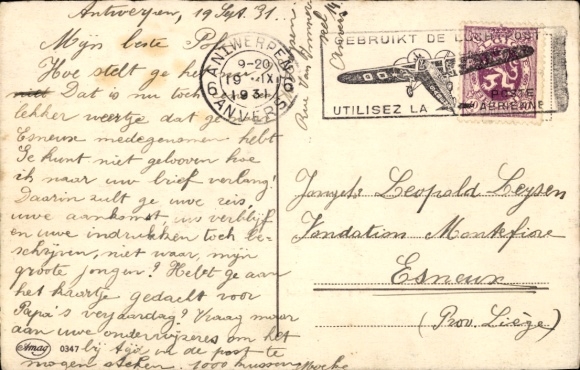 Antwerpen, 19 Sept. 31.
Mijn beste Pol
Hoe stelt ge het
niet Dat is nu toch
lekker weertje dat ge
Esneux medegenomen hebt
Je kunt niet gelooven hoe
ik naar uw brief verlang!
Daarin zult ge uwe reis,
uwe aankomst, uw verblijf
en uwe indrukken toch be-
schrijven, niet waar, mijn
groote jongen? Hebt ge aan
het kaartje gedacht voor
Papa's verjaardag? Vraag maar
aan uwe onderwijzeres om het
bij tijd in de post te
mogen steken. 1000 kussen Moeke
Rue Van
Anvers
ANTWERPEN 6
9-20
19 IX
1931
6 ANVERS
GEBRUIKT DE LUCHTPOST
UTILISEZ LA POSTE AERIENNE
Leopold Leysen
Fondation Montefiore
Esneux
(Prov. Liège)
Amag
0347